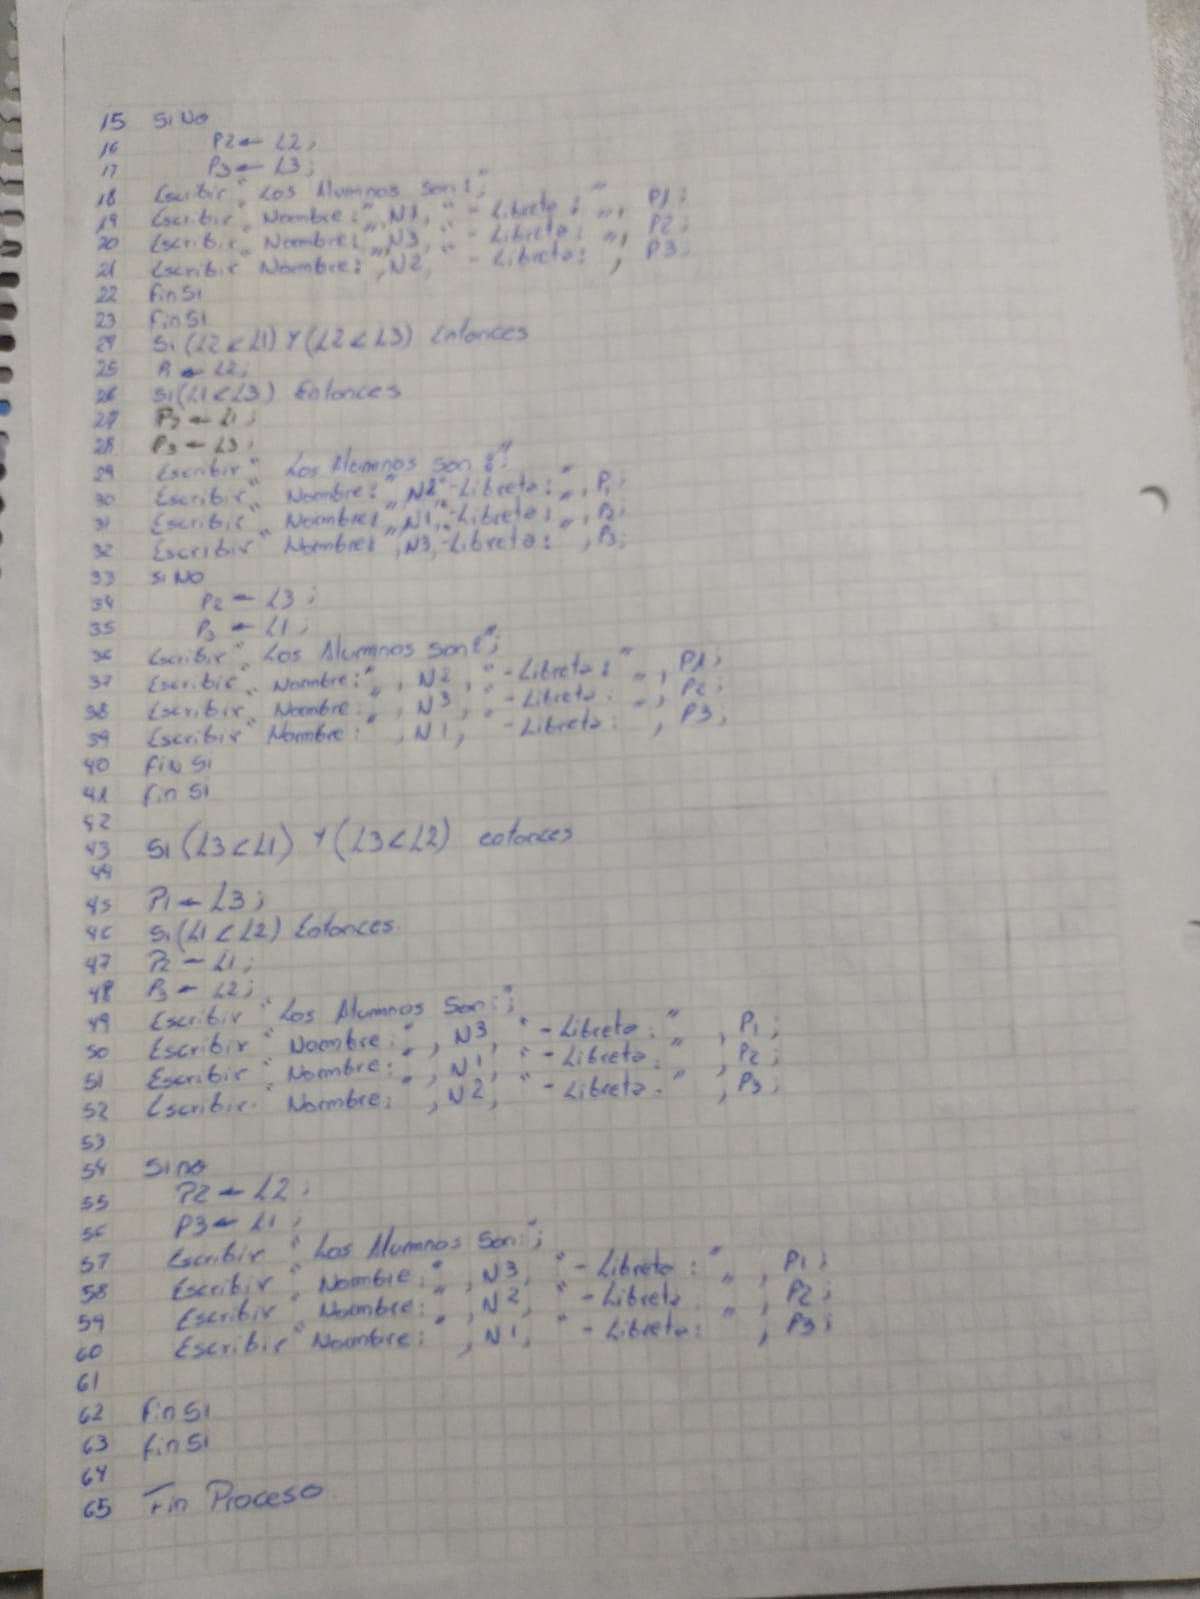 15 SiNo
16 P2 ← L2;
17 P3 ← L3;
18 Escribir "Los Alumnos son:";
19 Escribir "Nombre:", N1, "-Libreta:", P1;
20 Escribir "Nombre:", N3, "-Libreta:", P2;
21 Escribir "Nombre:", N2, "-Libreta:, P3;
22 finSi
23 FinSi
24 Si (L2 < L1) Y (L2 < L3) Entonces
25 P1 ← L2;
26 Si (L1 < L3) Entonces
27 ← L1;
28 P3 ← L3;
29 Escribir "Los Alumnos son:";
30 Escribir "Nombre:", N2"-Libreta:", P1;
31 Escribir "Nombre:", N1,"-Libreta:", P2;
32 Escribir "Nombre:", N3,"-Libreta:", P3;
33 SiNo
34 P2 ← L3;
35 P3 ← L1;
36 Escribir "Los Alumnos son:";
37 Escribir "Nombre:", N2, "-Libreta:", P1;
38 Escribir "Nombre:", N3, "-Libreta:", P2;
39 Escribir "Nombre:", N1, "-Libreta:, P3;
40 FiN Si
41 fin Si
42
43 Si (L3 < L1) Y (L3 < L2) entonces
44
45 P1 ← L3;
46 Si (L1 < L2) Entonces.
47 P2 ← L1;
48 P3 ← L2;
49 Escribir "Los Alumnos Son:";
50 Escribir "Nombre:", N3, "-Libreta:", P1;
51 Escribir "Nombre:", N1, "-Libreta:", P2;
52 Escribir "Nombre:", N2, "-Libreta:", P3;
53
54 Sino
55 P2 ← L2;
56 P3 ← L1;
57 Escribir "Los Alumnos Son:";
58 Escribir "Nombre:", N3, "-Libreta:", P1;
59 Escribir "Nombre:", N2, "-Libreta:", P2;
60 Escribir "Nombre:", N1, "-Libreta:", P3;
61
62 FinSi
63 finSi
64
65 Fin Proceso